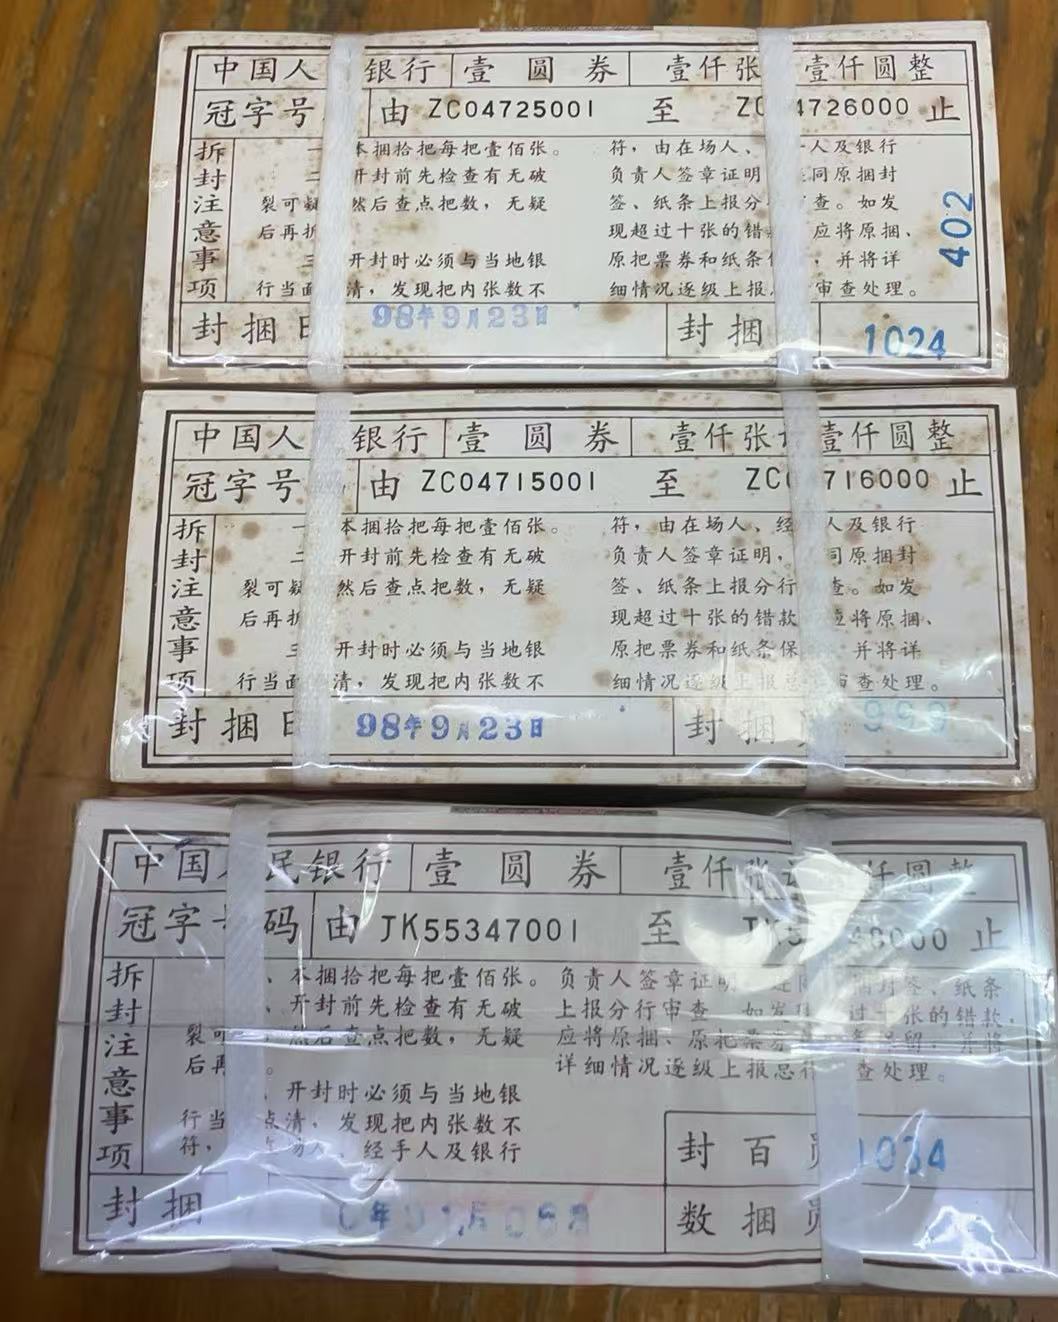 中国人 银行 壹圆券 壹仟张 壹仟圆整
冠字号 由 ZC04725001 至 ZC 4726000 止
拆封注意事项
一 本捆拾把每把壹佰张。
二 开封前先检查有无破
裂可疑 然后查点把数，无疑
后再拆
三 开封时必须与当地银
行当面 清，发现把内张数不
符，由在场人、 人及银行
负责人签章证明 同原捆封
签、纸条上报分 审查。如发
现超过十张的错 应将原捆、
原把票券和纸条 ，并将详
细情况逐级上报 审查处理。
402
封捆日 98年9月23日 封捆 1024
中国人 银行 壹圆券 壹仟张 壹仟圆整
冠字号 由 ZC04715001 至 ZC 716000 止
拆封注意事项
一 本捆拾把每把壹佰张。
二 开封前先检查有无破
裂可疑 然后查点把数，无疑
后再拆
三 开封时必须与当地银
行当面 清，发现把内张数不
符，由在场人、经 人及银行
负责人签章证明， 同原捆封
签、纸条上报分行 查。如发
现超过十张的错款 应将原捆、
原把票券和纸条保 并将详
细情况逐级上报总 审查处理。
封捆日 98年9月23日 封捆 999
中国 民银行 壹圆券 壹仟张 仟圆整
冠字 码 由 JK55347001 至 止
拆封注意事项
、本捆拾把每把壹佰张。
、开封前先检查有无破
裂可 然后查点把数，无疑
后再 。
、开封时必须与当地银
行当 点清，发现把内张数不
符， 场人、经手人及银行
负责人签章证明 捆封签、纸条
上报分行审查 如发 过十张的错款，
应将原捆、原把票券 条保留，并将
详细情况逐级上报总行 查处理。
封百员 1034
封捆
数捆员